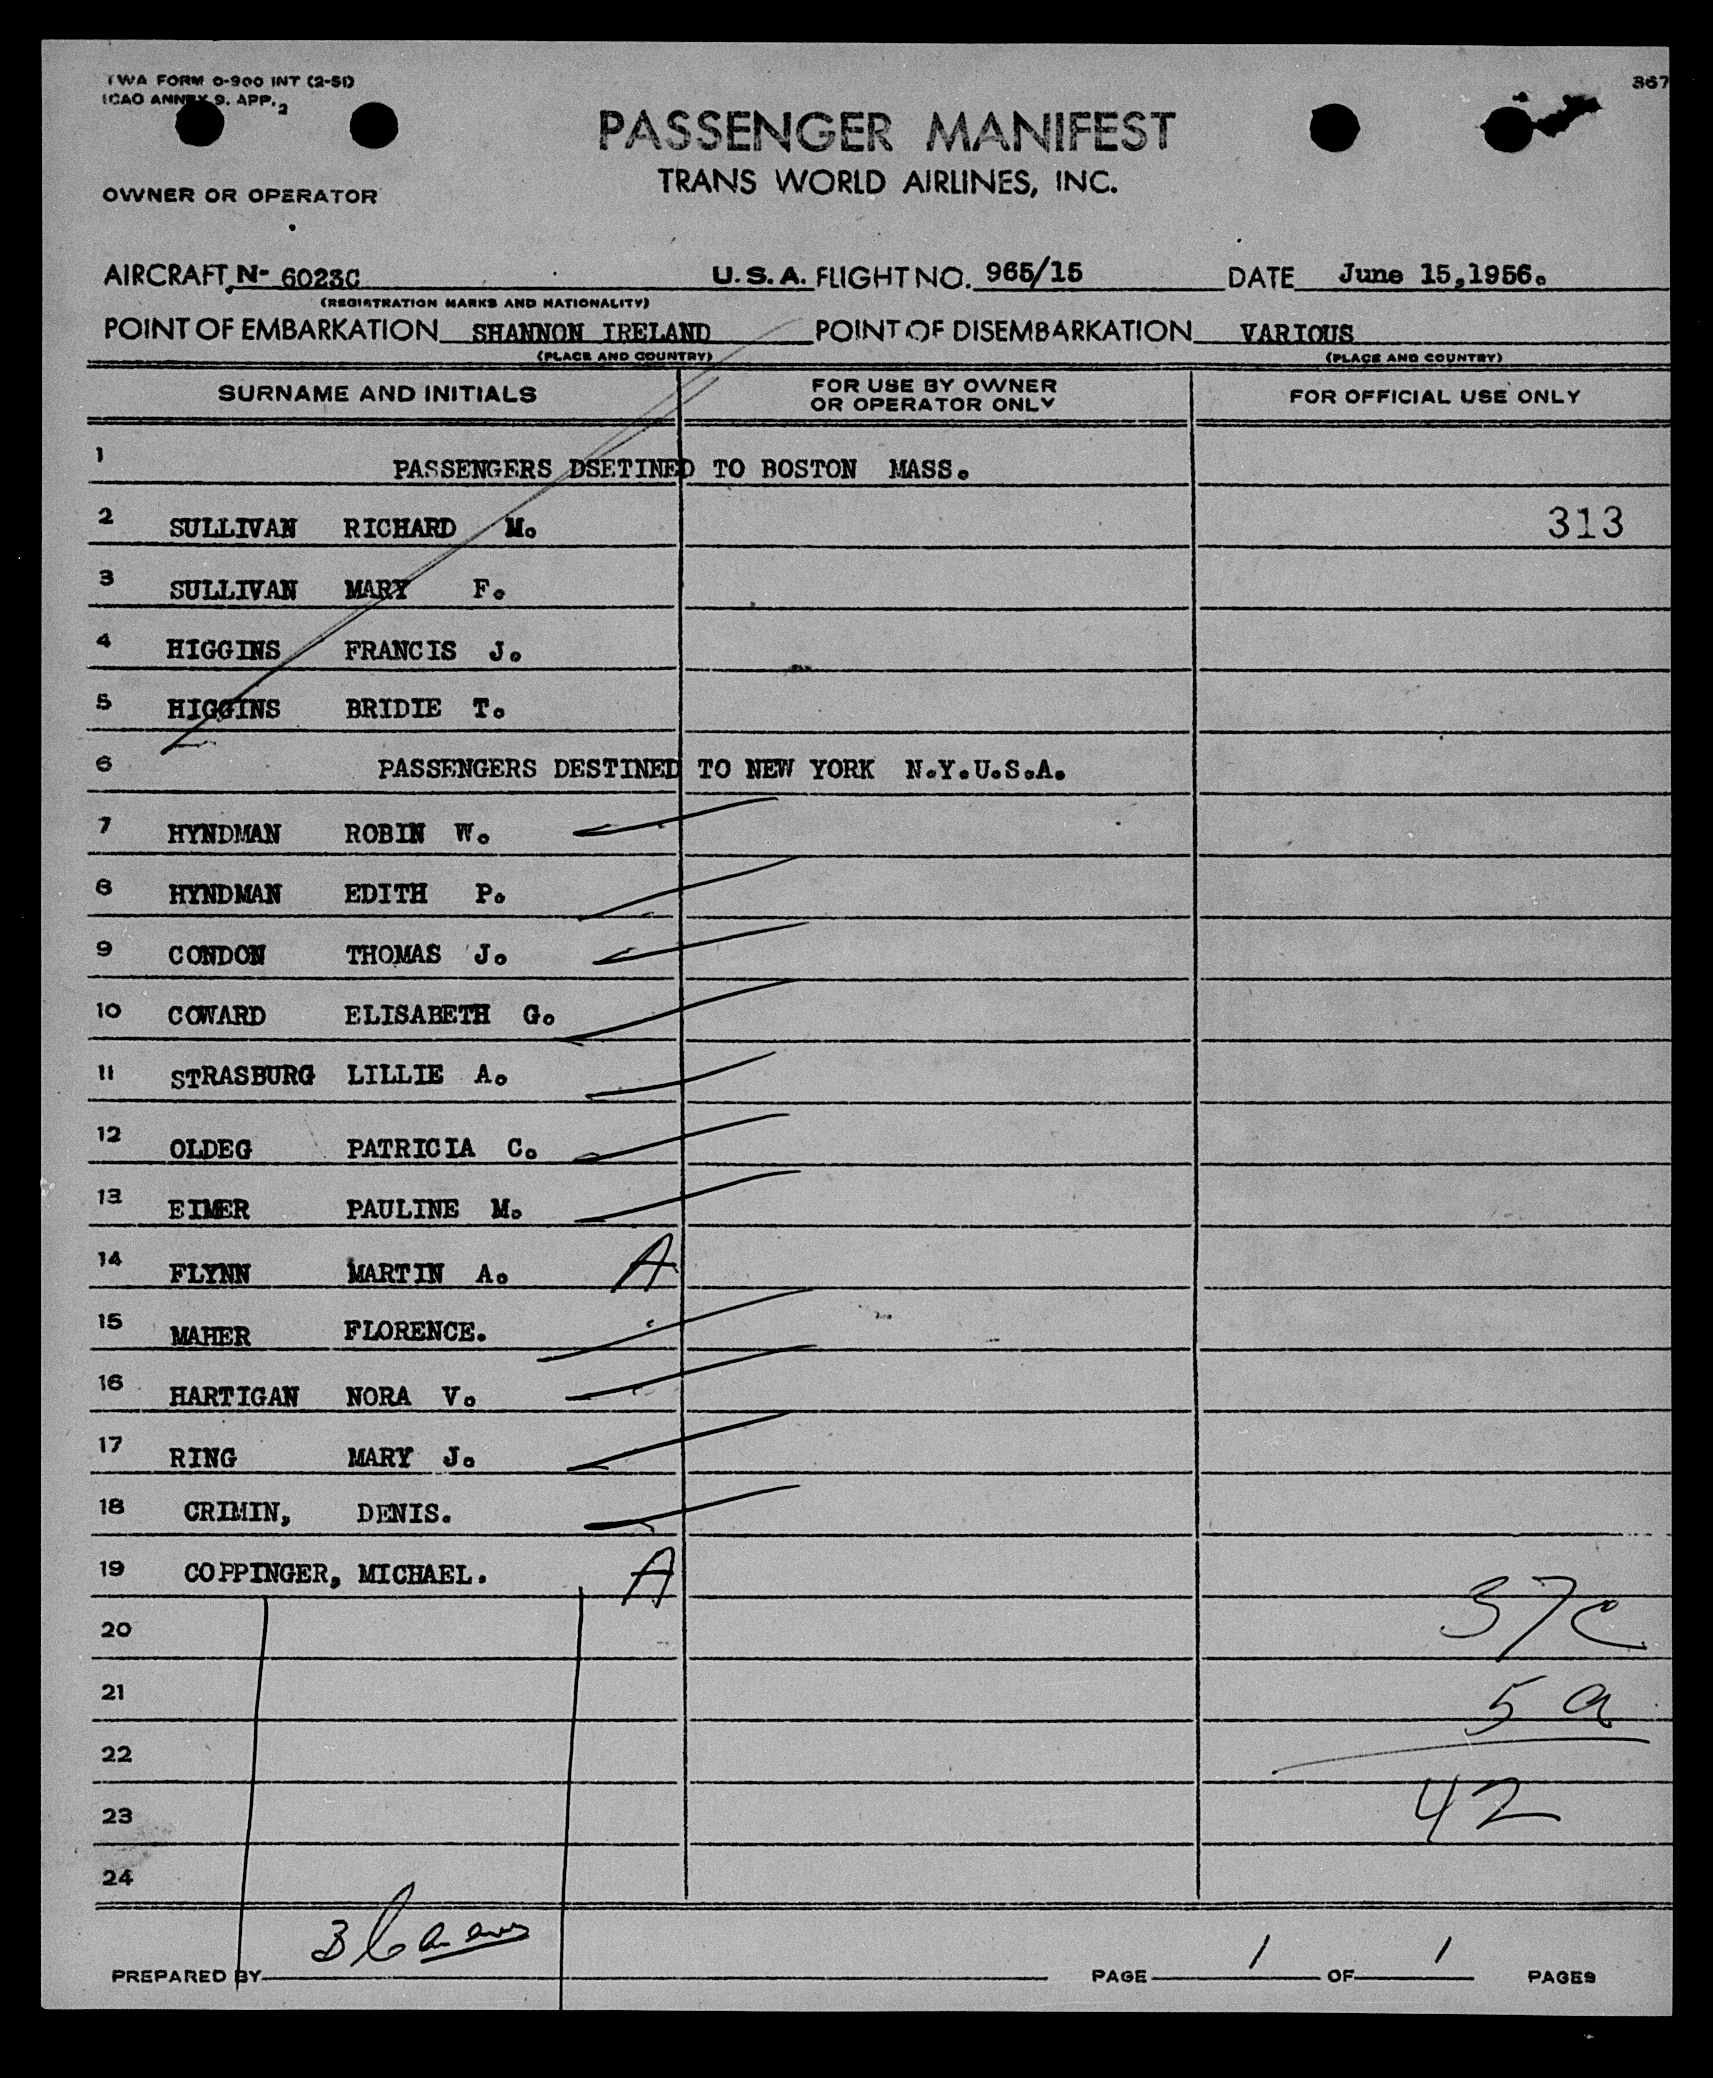 TWA FORM O-900 INT (2-51)
ICAO ANNEX 9. APP. 2
367
PASSENGER MANIFEST
TRANS WORLD AIRLINES, INC.
OWNER OR OPERATOR
AIRCRAFT N- 6023C U.S.A. FLIGHT NO. 965/15 DATE June 15,1956.
(REGISTRATION MARKS AND NATIONALITY)
POINT OF EMBARKATION SHANNON IRELAND POINT OF DISEMBARKATION VARIOUS
(PLACE AND COUNTRY) (PLACE AND COUNTRY)
SURNAME AND INITIALS FOR USE BY OWNER OR OPERATOR ONLY FOR OFFICIAL USE ONLY
1 PASSENGERS DSETINED TO BOSTON MASS.
2 SULLIVAN RICHARD M. 313
3 SULLIVAN MARY F.
4 HIGGINS FRANCIS J.
5 HIGGINS BRIDIE T.
6 PASSENGERS DESTINED TO NEW YORK N.Y.U.S.A.
7 HYNDMAN ROBIN W.
8 HYNDMAN EDITH P.
9 CONDON THOMAS J.
10 COWARD ELISABETH G.
11 STRASBURG LILLIE A.
12 OLDEG PATRICIA C.
13 EIMER PAULINE M.
14 FLYNN MARTIN A. A
15 MAHER FLORENCE.
16 HARTIGAN NORA V.
17 RING MARY J.
18 CRIMIN, DENIS.
19 COPPINGER, MICHAEL. A
20 37c
21 5 a
22
23 42
24
PREPARED BY PAGE 1 OF 1 PAGES